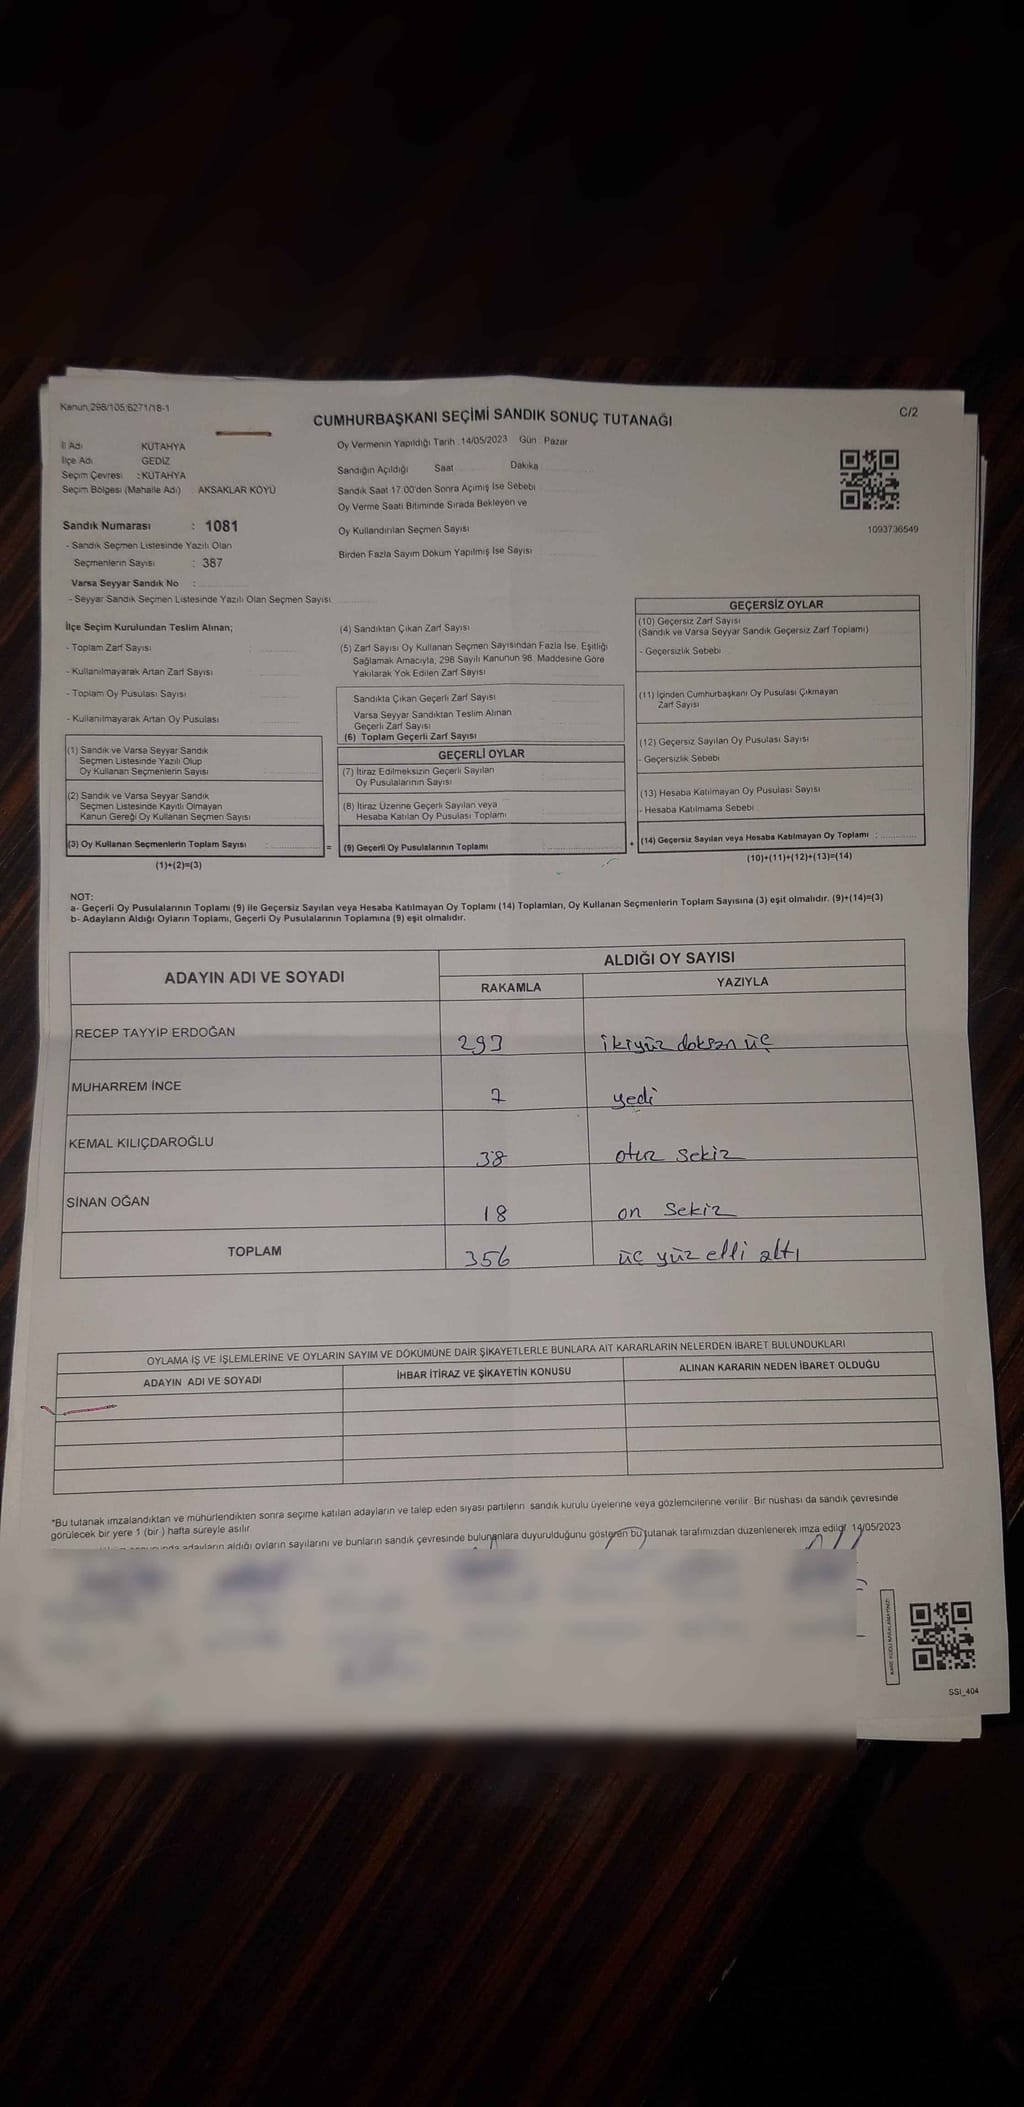 Kanun;298/105;6271/18-1
C/2
CUMHURBAŞKANI SEÇİMİ SANDIK SONUÇ TUTANAĞI
İl Adı KÜTAHYA
İlçe Adı GEDİZ
Seçim Çevresi : KÜTAHYA
Seçim Bölgesi (Mahalle Adı) AKSAKLAR KÖYÜ
Sandık Numarası : 1081
- Sandık Seçmen Listesinde Yazılı Olan
Seçmenlerin Sayısı : 387
Varsa Seyyar Sandık No :
- Seyyar Sandık Seçmen Listesinde Yazılı Olan Seçmen Sayısı
Oy Vermenin Yapıldığı Tarih : 14/05/2023 Gün : Pazar
Sandığın Açıldığı Saat Dakika
Sandık Saat 17:00'den Sonra Açımış İse Sebebi
Oy Verme Saati Bitiminde Sırada Bekleyen ve
Oy Kullandırılan Seçmen Sayısı
Birden Fazla Sayım Döküm Yapılmış İse Sayısı
1093736549
İlçe Seçim Kurulundan Teslim Alınan;
- Toplam Zarf Sayısı
- Kullanılmayarak Artan Zarf Sayısı
- Toplam Oy Pusulası Sayısı
- Kullanılmayarak Artan Oy Pusulası
(1) Sandık ve Varsa Seyyar Sandık
Seçmen Listesinde Yazılı Olup
Oy Kullanan Seçmenlerin Sayısı
(2) Sandık ve Varsa Seyyar Sandık
Seçmen Listesinde Kayıtlı Olmayan
Kanun Gereği Oy Kullanan Seçmen Sayısı
(3) Oy Kullanan Seçmenlerin Toplam Sayısı
(1)+(2)=(3)
(4) Sandıktan Çıkan Zarf Sayısı
(5) Zarf Sayısı Oy Kullanan Seçmen Sayısından Fazla İse, Eşitliği
Sağlamak Amacıyla, 298 Sayılı Kanunun 98. Maddesine Göre
Yakılarak Yok Edilen Zarf Sayısı
Sandıkta Çıkan Geçerli Zarf Sayısı
Varsa Seyyar Sandıktan Teslim Alınan
Geçerli Zarf Sayısı
(6) Toplam Geçerli Zarf Sayısı
GEÇERLİ OYLAR
(7) İtiraz Edilmeksizin Geçerli Sayılan
Oy Pusulalarının Sayısı
(8) İtiraz Üzerine Geçerli Sayılan veya
Hesaba Katılan Oy Pusulası Toplamı
= (9) Geçerli Oy Pusulalarının Toplamı
GEÇERSİZ OYLAR
(10) Geçersiz Zarf Sayısı
(Sandık ve Varsa Seyyar Sandık Geçersiz Zarf Toplamı)
- Geçersizlik Sebebi
(11) İçinden Cumhurbaşkanı Oy Pusulası Çıkmayan
Zarf Sayısı
(12) Geçersiz Sayılan Oy Pusulası Sayısı
- Geçersizlik Sebebi
(13) Hesaba Katılmayan Oy Pusulası Sayısı
- Hesaba Katılmama Sebebi
+ (14) Geçersiz Sayılan veya Hesaba Katılmayan Oy Toplamı :
(10)+(11)+(12)+(13)=(14)
NOT:
a- Geçerli Oy Pusulalarının Toplamı (9) ile Geçersiz Sayılan veya Hesaba Katılmayan Oy Toplamı (14) Toplamları, Oy Kullanan Seçmenlerin Toplam Sayısına (3) eşit olmalıdır. (9)+(14)=(3)
b- Adayların Aldığı Oyların Toplamı, Geçerli Oy Pusulalarının Toplamına (9) eşit olmalıdır.
ADAYIN ADI VE SOYADI
ALDIĞI OY SAYISI
RAKAMLA YAZIYLA
RECEP TAYYİP ERDOĞAN 293 ikiyüz doksan üç
MUHARREM İNCE 7 yedi
KEMAL KILIÇDAROĞLU 38 otuz sekiz
SİNAN OĞAN 18 on sekiz
TOPLAM 356 üç yüz elli altı
OYLAMA İŞ VE İŞLEMLERİNE VE OYLARIN SAYIM VE DÖKÜMÜNE DAİR ŞİKAYETLERLE BUNLARA AİT KARARLARIN NELERDEN İBARET BULUNDUKLARI
ADAYIN ADI VE SOYADI İHBAR İTİRAZ VE ŞİKAYETİN KONUSU ALINAN KARARIN NEDEN İBARET OLDUĞU
*Bu tutanak imzalandıktan ve mühürlendikten sonra seçime katılan adayların ve talep eden siyasi partilerin sandık kurulu üyelerine veya gözlemcilerine verilir. Bir nüshası da sandık çevresinde
görülecek bir yere 1 (bir) hafta süreyle asılır.
adayların aldığı oyların sayılarını ve bunların sandık çevresinde bulunanlara duyurulduğunu gösteren bu tutanak tarafımızdan düzenlenerek imza edildi. 14/05/2023
SSI_404